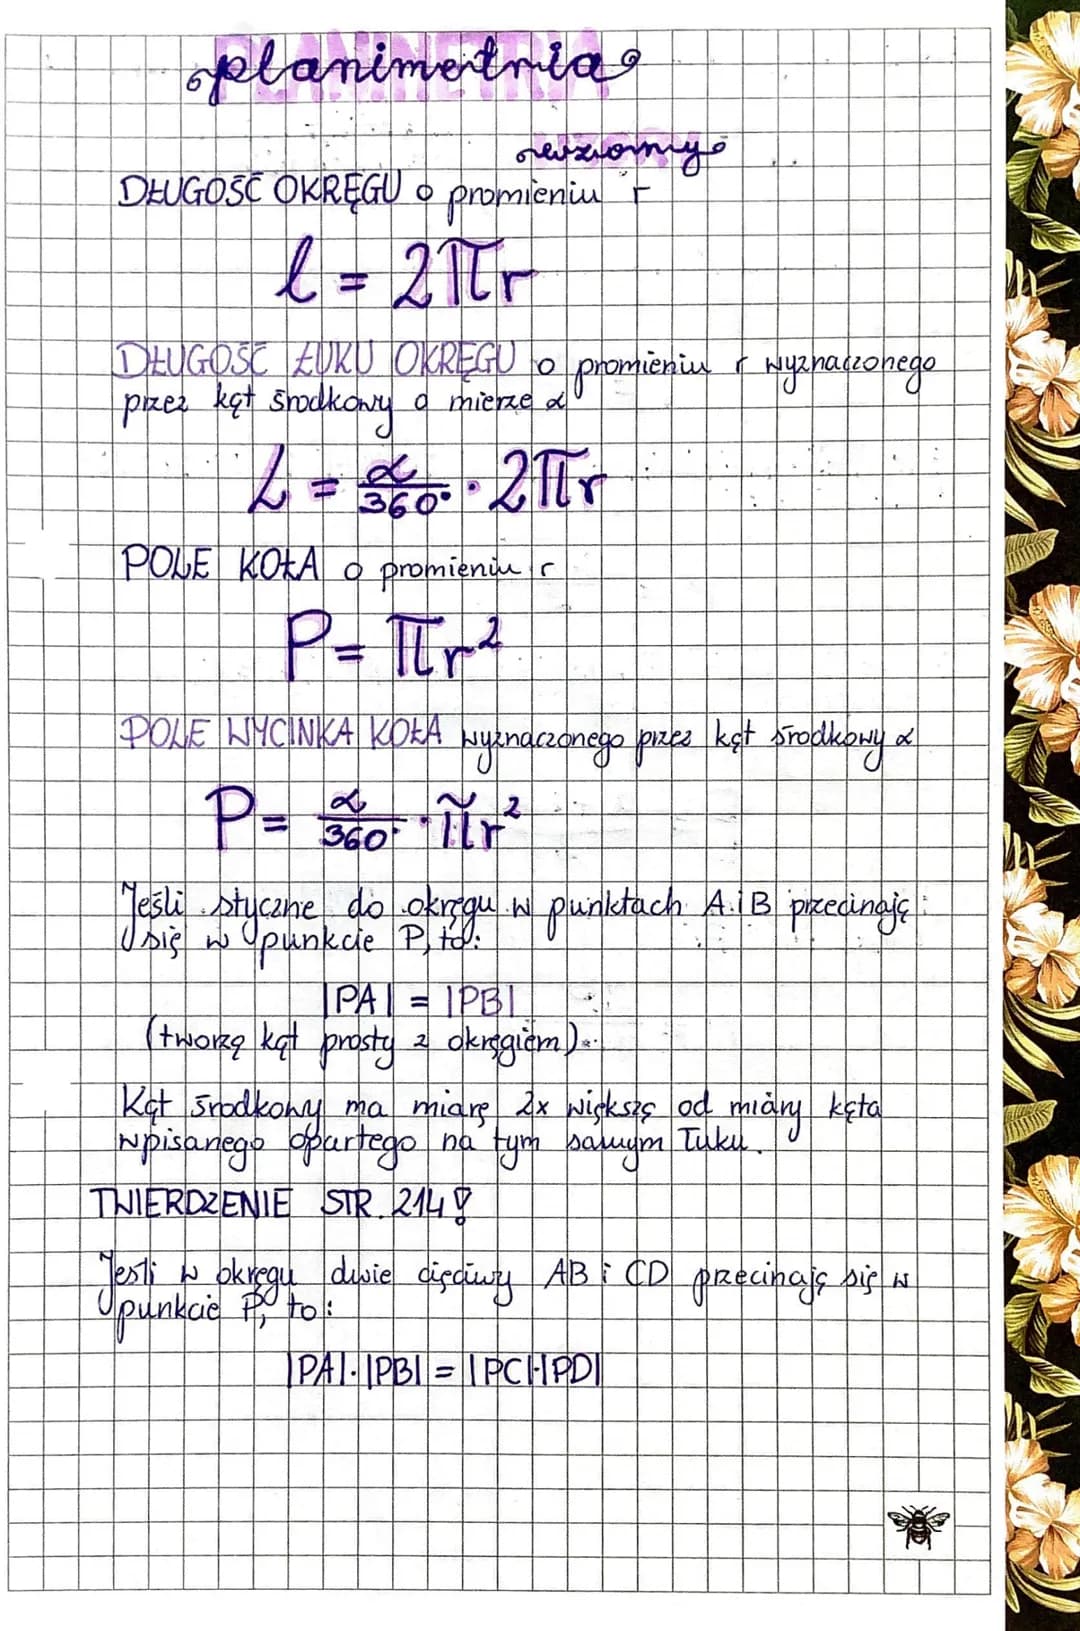 planimetria
wzory
DŁUGOŚĆ OKRĘGU o promieniu r
l = 2πr
DŁUGOŚĆ ŁUKU OKRĘGU o promieniu r wyznaczonego
przez kąt środkowy o mierze α
L = α/360° · 2πr
POLE KOŁA o promieniu r
P = πr²
POLE WYCINKA KOŁA wyznaczonego przez kąt środkowy α
P = α/360° · πr²
Jeśli styczne do okręgu w punktach A i B przecinają
się w punkcie P, to:
|PA| = |PB|
(tworzą kąt prosty z okręgiem).
Kąt środkowy ma miarę 2x większą od miary kąta
wpisanego opartego na tym samym łuku.
TWIERDZENIE STR. 214!
Jeśli w okręgu dwie cięciwy AB i CD przecinają się w
punkcie P, to:
|PA|·|PB| = |PC|·|PD|